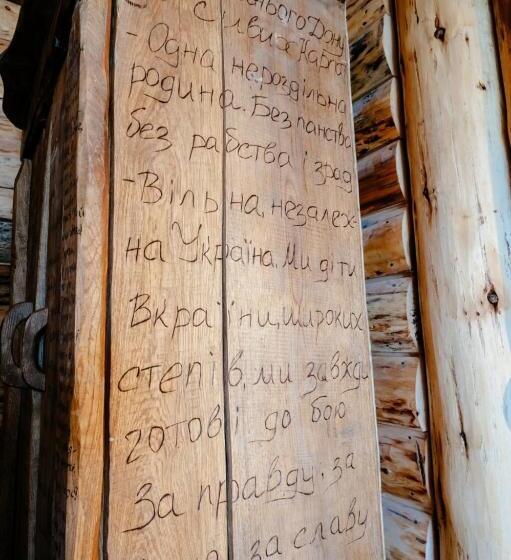 нього Дону
Сивих Карпат
- Одна нероздільна
родина. Без панства
без рабства і зрад
- Вільна, незалеж-
на Україна. Ми діти
Вкраїни, широких
степів, ми завжди
готові до бою
За правду. за
за славу